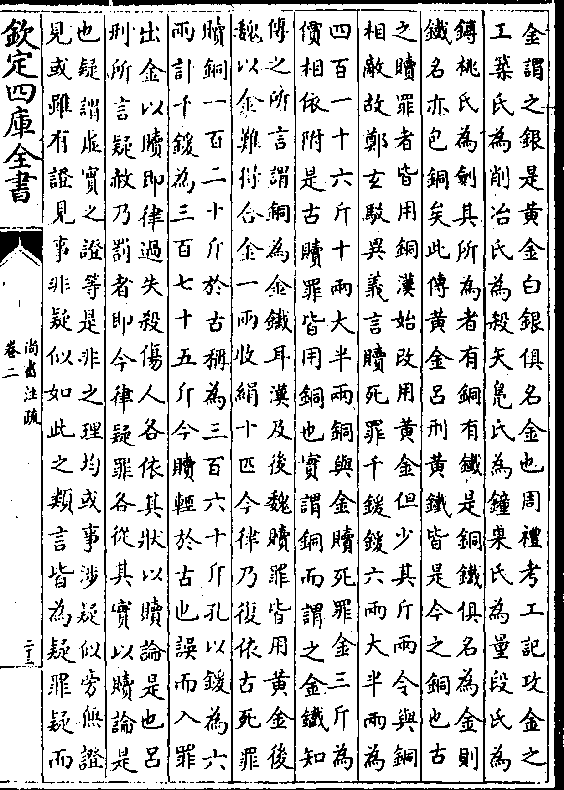 金謂之銀是黃金白銀俱名金也周禮考工記攻金之
工築氏為削冶氏為殺矢鳬氏為鐘㮚氏為量段氏為
鎛桃氏為劍其所為者有銅有鐵是銅鐵俱名為金則
鐵名亦包銅矣此傳黃金呂刑黃鐵皆是今之銅也古
之贖罪者皆用銅漢始改用黃金但少其斤兩令與銅
相敵故鄭玄駁異義言贖死罪千鍰鍰六兩大半兩為
四百一十六斤十兩大半兩銅與金贖死罪金三斤為
價相依附是古贖罪皆用銅也實謂銅而謂之金鐵知
傳之所言謂銅為金鐵耳漢及後魏贖罪皆用黃金後
魏以金難得合金一兩收絹十匹今律乃復依古死罪
贖銅一百二十斤於古稱為三百六十斤孔以鍰為六
兩計千鍰為三百七十五斤今贖輕於古也誤而入罪
出金以贖即律過失殺傷人各依其狀以贖論是也呂
刑所言疑赦乃罰者即今律疑罪各從其實以贖論是
也疑謂虛實之證等是非之理均或事涉疑似旁無證
見或雖有證見事非疑似如此之類言皆為疑罪疑而
欽定四庫全書
尚書注疏
卷二